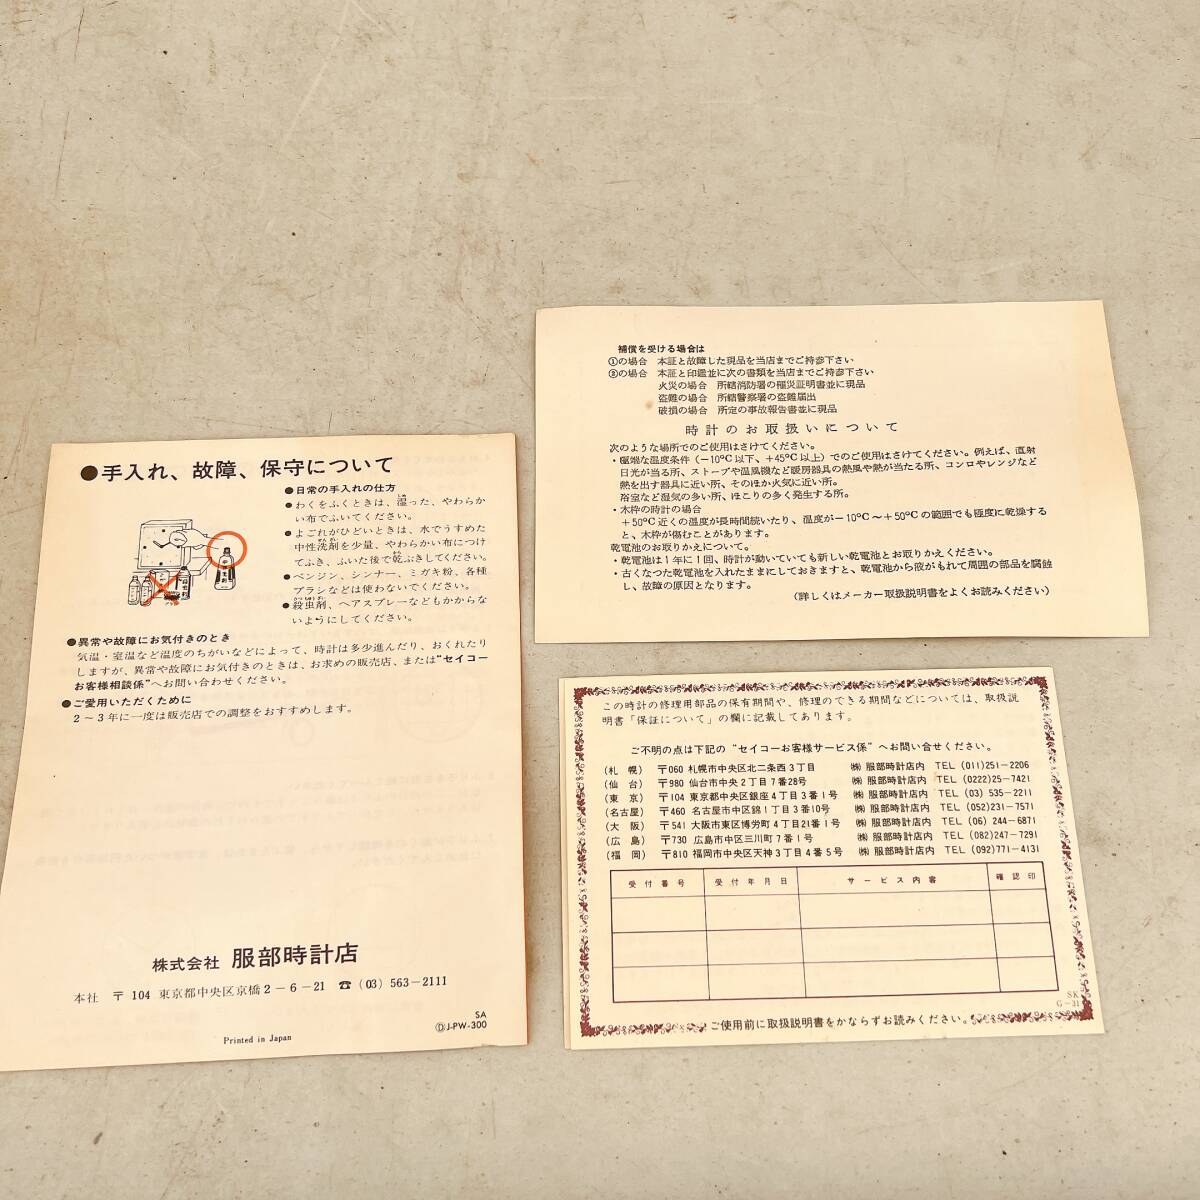 ●手入れ、故障、保守について
●日常の手入れの仕方
●わくをふくときは、湿った、やわらか
い布でふいてください。
●よごれがひどいときは、水でうすめた
中性洗剤を少量、やわらかい布につけ
てふき、ふいた後で乾ぶきしてください。
●ベンジン、シンナー、ミガキ粉、各種
ブラシなどは使わないでください。
●殺虫剤、ヘアスプレーなどもかからな
いようにしてください。
●異常や故障にお気付きのとき
気温・室温など温度のちがいなどによって、時計は多少進んだり、おくれたり
しますが、異常や故障にお気付きのときは、お求めの販売店、または“セイコー
お客様相談係”へお問い合わせください。
●ご愛用いただくために
2～3年に一度は販売店での調整をおすすめします。
株式会社 服部時計店
本社 〒104 東京都中央区京橋2－6－21 ☎(03)563－2111
SA
ⒹJ-PW-300
Printed in Japan
補償を受ける場合は
①の場合 本証と故障した現品を当店までご持参下さい
②の場合 本証と印鑑並に次の書類を当店までご持参下さい
火災の場合 所轄消防署の罹災証明書並に現品
盗難の場合 所轄警察署の盗難届出
破損の場合 所定の事故報告書並に現品
時計のお取扱いについて
次のような場所でのご使用はさけてください。
・極端な温度条件（－10℃以下、＋45℃以上）でのご使用はさけてください。例えば、直射
日光が当る所、ストーブや温風機など暖房器具の熱風や熱が当たる所、コンロやレンジなど
熱を出す器具に近い所、そのほか火気に近い所。
浴室など湿気の多い所、ほこりの多く発生する所。
・木枠の時計の場合
＋50℃近くの温度が長時間続いたり、温度が－10℃～＋50℃の範囲でも極度に乾燥する
と、木枠が傷むことがあります。
乾電池のお取りかえについて。
・乾電池は1年に1回、時計が動いていても新しい乾電池とお取りかえください。
・古くなった乾電池を入れたままにしておきますと、乾電池から液がもれて周囲の部品を腐蝕
し、故障の原因となります。
（詳しくはメーカー取扱説明書をよくお読みください）
この時計の修理用部品の保有期間や、修理のできる期間などについては、取扱説
明書「保証について」の欄に記載してあります。
ご不明の点は下記の“セイコーお客様サービス係”へお問い合せください。
（札 幌） 〒060 札幌市中央区北二条西3丁目 ㈱ 服部時計店内 TEL (011)251-2206
（仙 台） 〒980 仙台市中央2丁目7番28号 ㈱ 服部時計店内 TEL (0222)25-7421
（東 京） 〒104 東京都中央区銀座4丁目3番1号 ㈱ 服部時計店内 TEL (03) 535-2211
（名古屋） 〒460 名古屋市中区錦1丁目3番10号 ㈱ 服部時計店内 TEL (052)231-7571
（大 阪） 〒541 大阪市東区博労町4丁目21番1号 ㈱ 服部時計店内 TEL (06) 244-6871
（広 島） 〒730 広島市中区三川町7番1号 ㈱ 服部時計店内 TEL (082)247-7291
（福 岡） 〒810 福岡市中央区天神3丁目4番5号 ㈱ 服部時計店内 TEL (092)771-4131
受付番号 受付年月日 サービス内容 確認印
SK
G-31
ご使用前に取扱説明書をかならずお読みください。